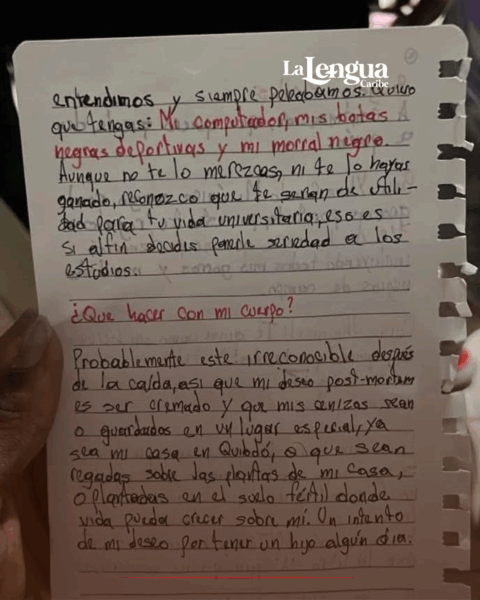 La Lengua
Caribe
entendimos y siempre peleabamos. Quiero
que tengas: Mi computador, mis botas
negras deportivas y mi morral negro.
Aunque no te lo merezcas, ni te lo hayas
ganado, reconozco que te serian de utili-
dad para tu vida universitaria, eso es
si alfin decides ponerle seriedad a los
estudios.
¿Que hacer con mi cuerpo?
Probablemente este irreconocible después
de la caída, así que mi deseo post-mortum
es ser cremado y que mis cenizas sean
o guardadas en un lugar especial, ya
sea mi casa en Quibdó, o que sean
regadas sobre las plantas de mi casa,
o plantadas en el suelo fértil donde
vida pueda crecer sobre mí. Un intento
de mi deseo por tener un hijo algún día.